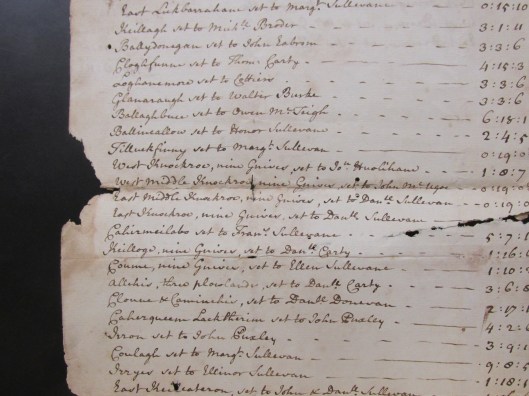 East Lickbarrahane set to Marg.t Sullevane - - 0:15:10
Keillagh set to Mich.ll Broder - - - 3:1:11
Ballydonegan set to John Eabrom - - - 3:3:6
Cloghfunne set to Thom.s Carty - - - 4:15:3
Loghanemore set to Cottier - - - 3:3:6
Glanaragh set to Walter Burke - - - 3:3:6
Ballaghbuee set to Owen McTeigh - - - 6:18:1
Ballineallow set to Honor Sullevane - - - 2:4:5
Tilluckfinny set to Marg.t Sullevan - - - 0:19:0
West Knockroe, nine Gnives, set to Jo.n Huolihane - - 1:8:7
West Middle Knockroe, nine Gnives, set to John 0:19:0
East Middle Knockroe, nine Gnives, set to Dan.ll Sullevan - - 0:19:0
East Knockroe, nine Gnives, set to Dan.ll Sullevan
Cahirmeilabo set to Fran.s Sullevane - - - 5:7:1
Keilloge, nine Gnives, set to Dan.ll Carty - - - 1:16:6
Coume, nine Gnives, set to Ellen Sullevane - - - 1:10:2
Allihis, three plowlands, set to Dan.ll Carty - - - 3:6:8
Cloune & Caminches, set to Dan.ll Donevan - - - 2:17:1
Caherqueem Lacktherim set to John Puxley - - 4:2:
Irron set to John Puxley - - - 3:9:1
Coulagh set to Marg.t Sullevan - - - 9:8:5
Irryes set to Ellinor Sullevan - - - 1:18:
East set to John & Dan.ll Sullevan - -